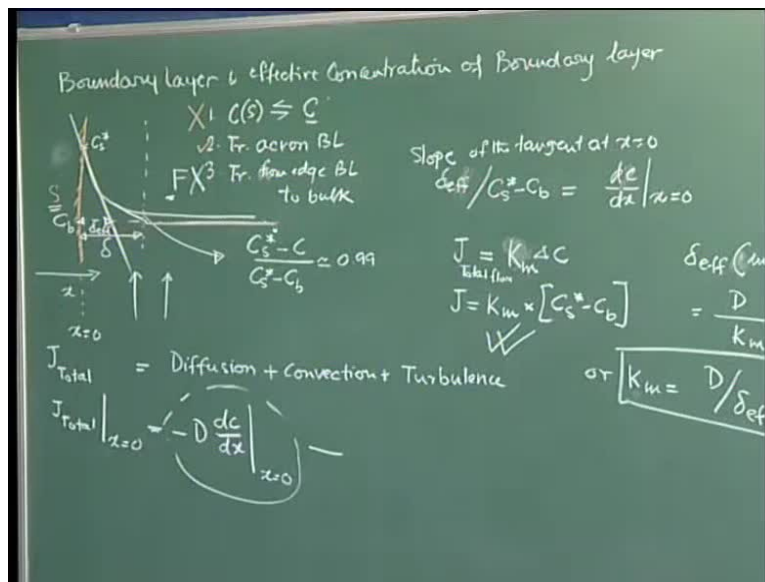 Boundary layer & effective Concentration of Boundary layer
X 1. C(S) ⇋ C
2. Tr. across BL
FX 3 Tr. from edge BL
to bulk
Cs*
S
Cb
δeff
δ
x
x=0
Cs*-C / Cs*-Cb ≃ 0.99
Slope of the tangent at x=0
δeff / Cs*-Cb = dc/dx |x=0
J = Km ΔC
Total flux
J = Km × [Cs*-Cb]
δeff
= D / Km
or Km = D/δef
J Total = Diffusion + Convection + Turbulence
J Total |x=0 = -D dc/dx |x=0 —